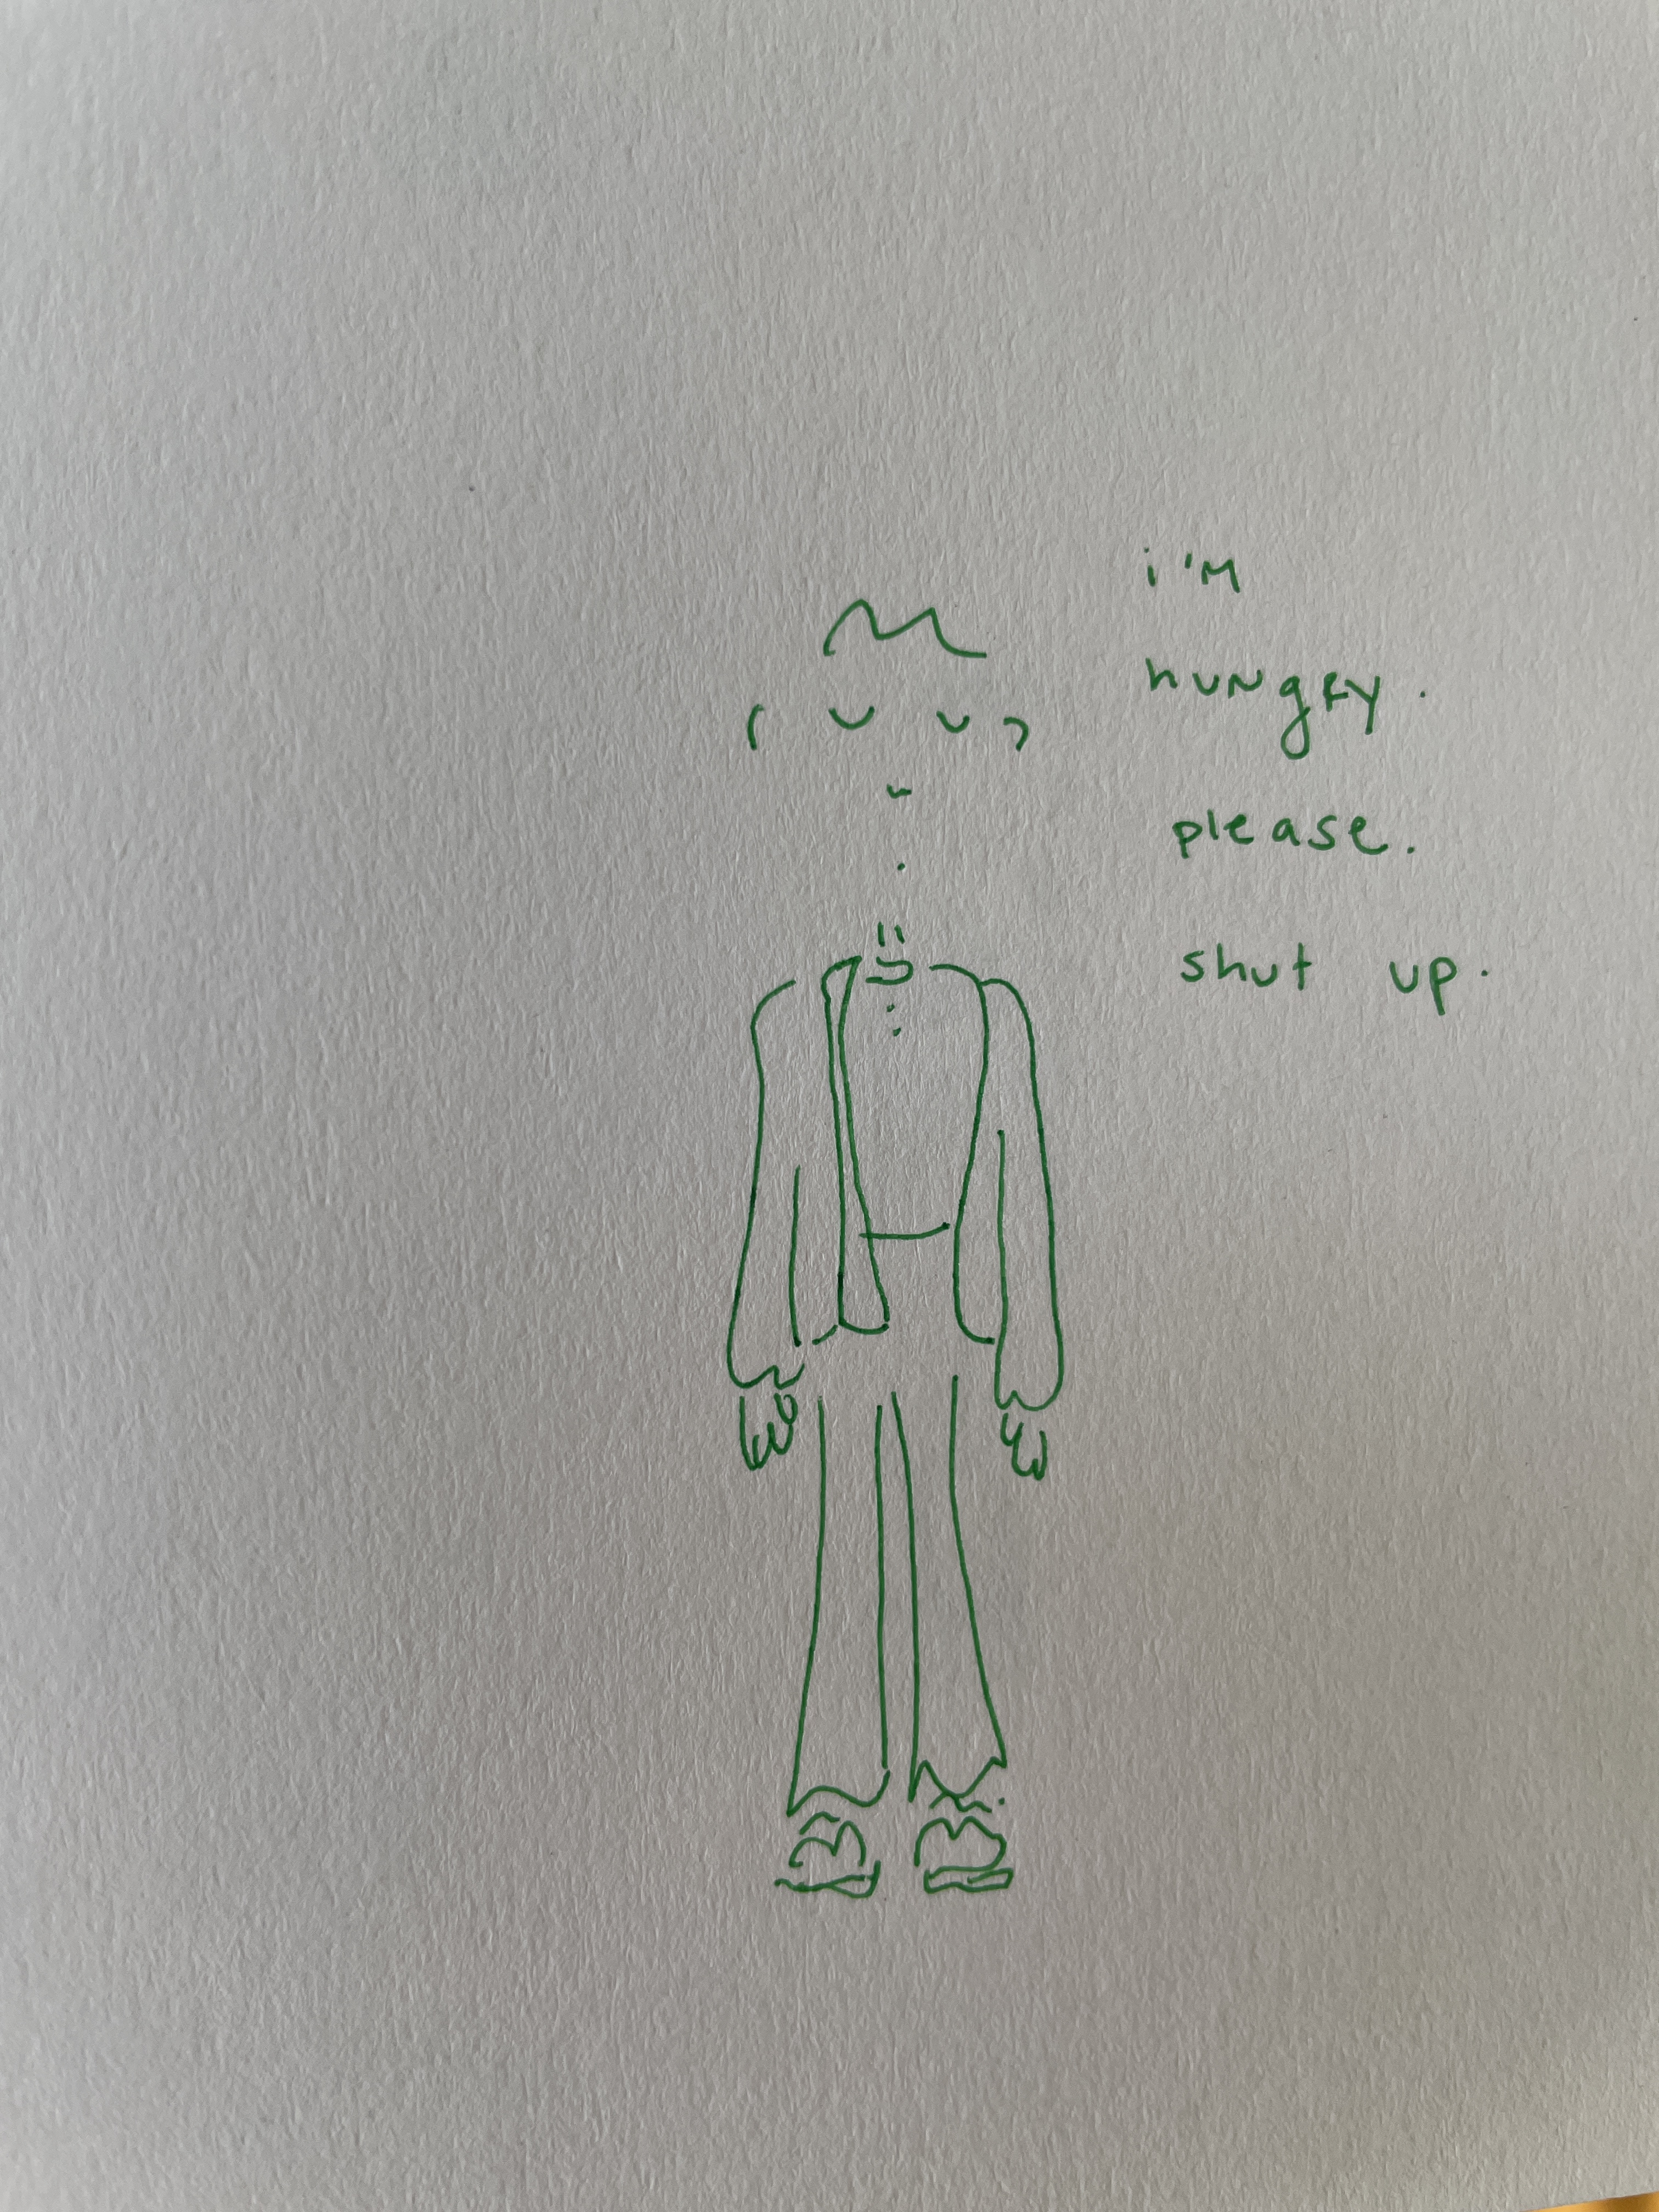 i'm
hungry.
please.
shut up.